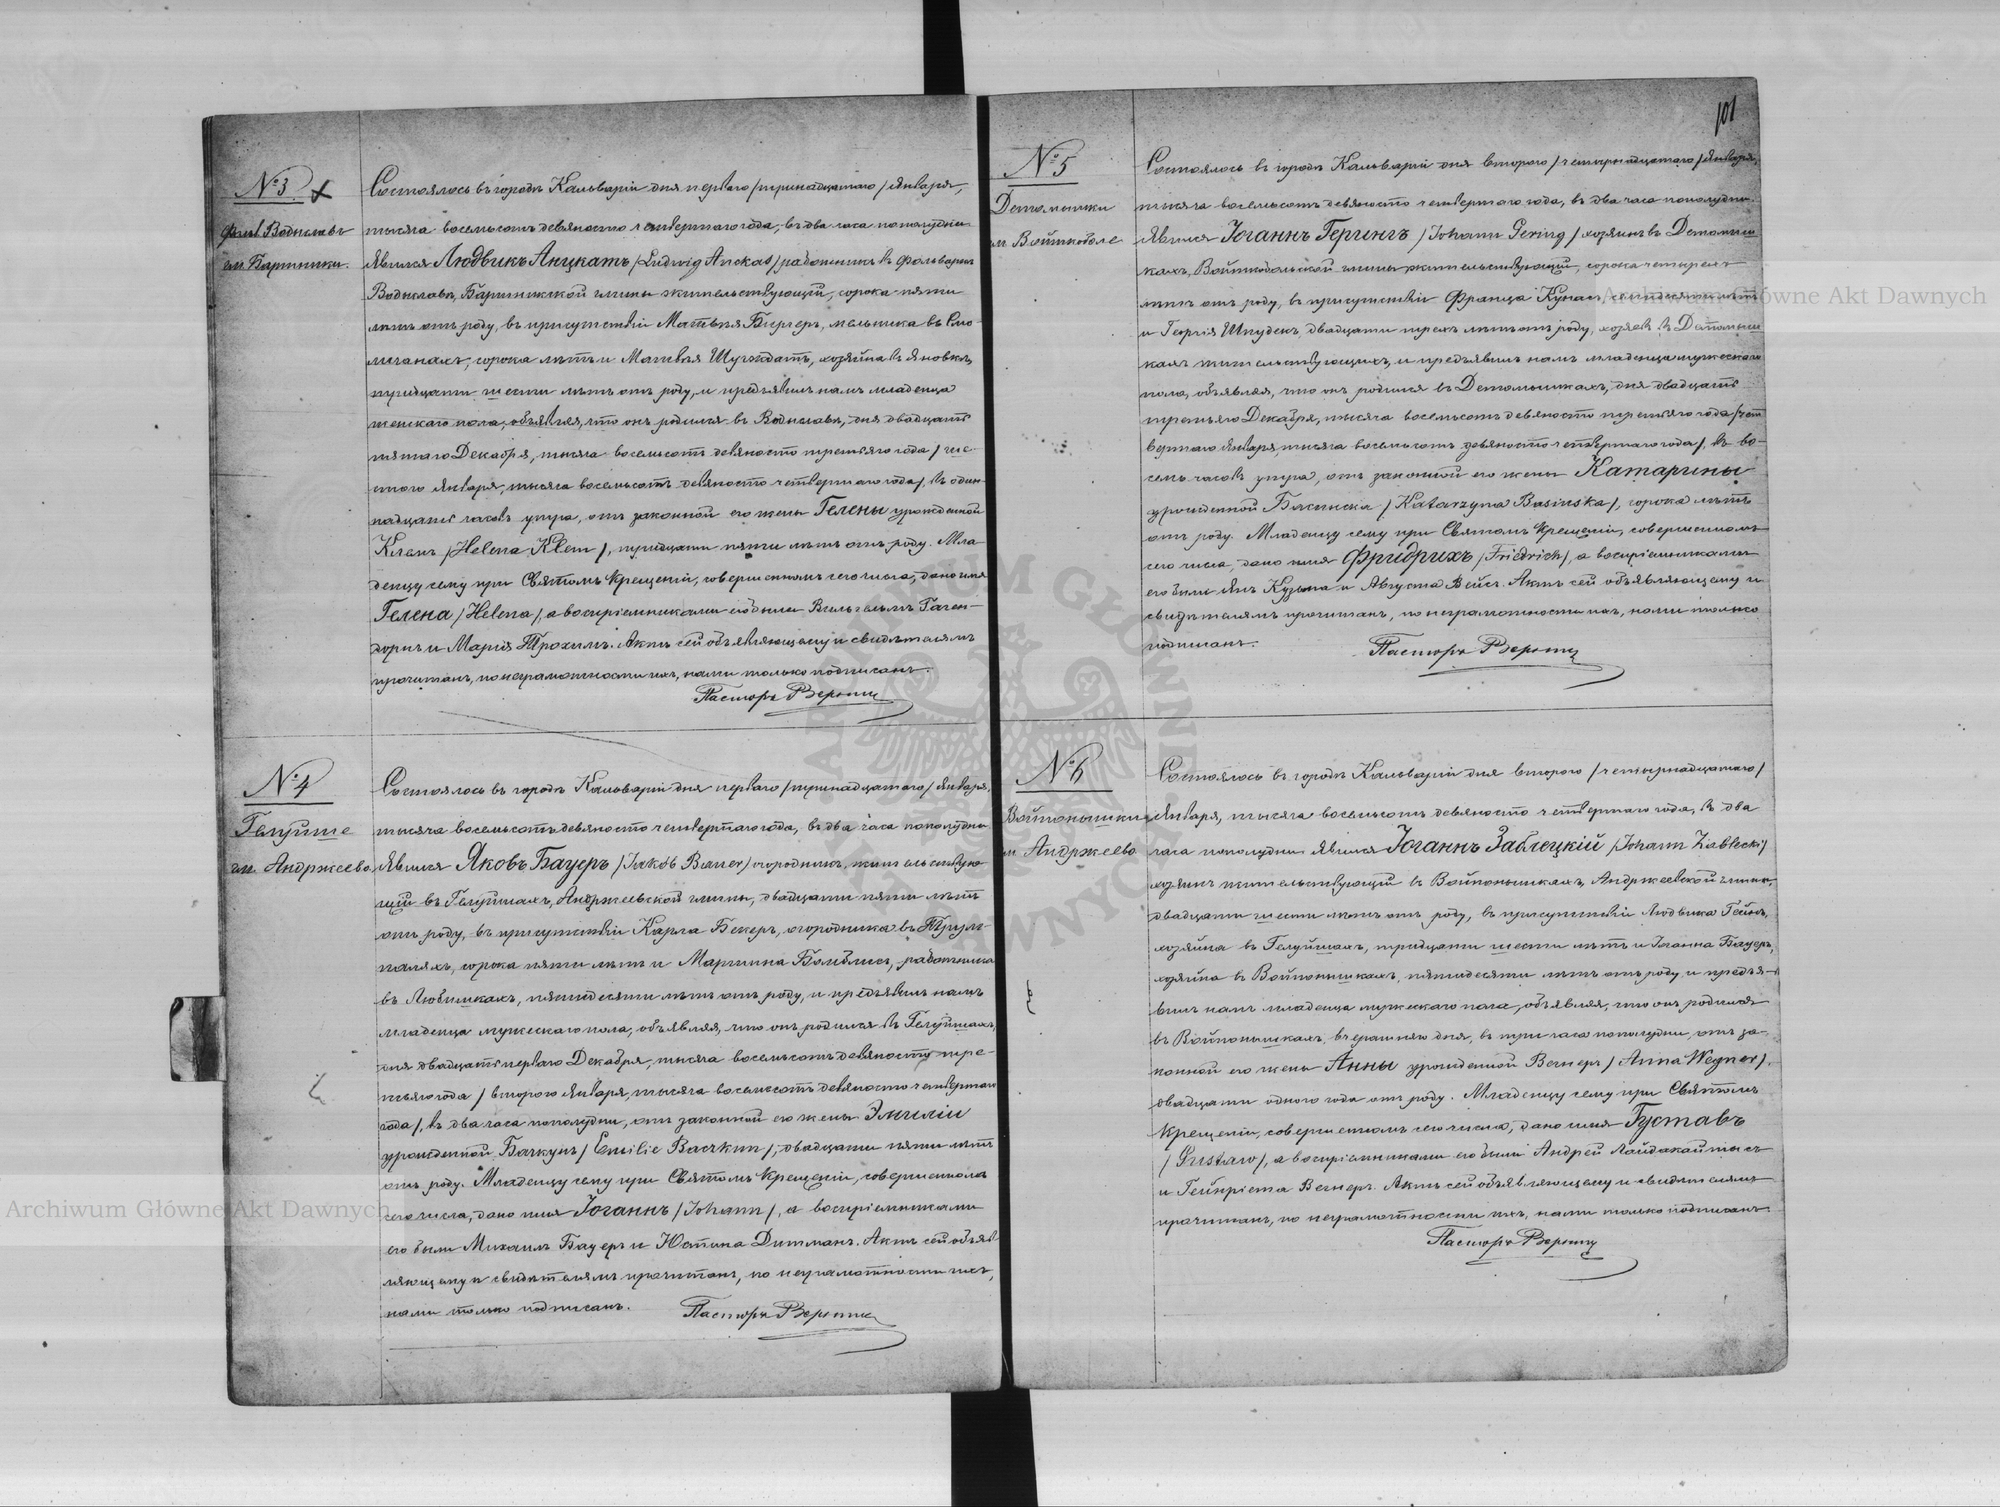 № 3
Фольв. Водыславъ
гм. Бартники.
Состоялось въ городѣ Кальваріи дня перваго /тринадцатаго/ Января,
тысяча восемьсотъ девяносто четвертаго года, въ два часа пополудни
явился Людвикъ Анцкатъ /Ludwig Anckat/ работникъ въ Фольваркѣ
Водыславѣ, Бартникской гмины жительствующій, сорока пяти
лѣтъ отъ роду, въ присутствіи Матвѣя Биргеръ, мельника въ Смо-
лѣтъ и Матвѣя хозяина въ Яновкѣ,
тридцати шести лѣтъ отъ роду, и предъявилъ намъ младенца
женскаго пола, объявляя, что онъ родился въ Водыславѣ, дня двадцать
пятаго Декабря, тысяча восемьсотъ девяносто третьяго года /ше-
стого Января, тысяча восемьсотъ девяносто четвертаго года/, въ один-
надцать часовъ утра, отъ законной его жены Гелены урожденной
Клемъ /Helena Klem/, тридцати пяти лѣтъ отъ роду. Мла-
денцу сему при Святомъ Крещеніи, совершенномъ сего числа, дано имя
Гелена /Helena/, а воспріемниками его были Вильгельмъ Гаген-
дорнъ и Марія Трохимъ. Актъ сей объявляющему и свидѣтелямъ
прочитанъ, по неграмотности ихъ, нами только подписанъ.
Пасторъ
№ 4
Гелуйше
гм. Андржеево
Состоялось въ городѣ Кальваріи дня перваго /тринадцатаго/ Января,
тысяча восемьсотъ девяносто четвертаго года, въ два часа пополудни
явился Яковъ Бауеръ /Jakób Bauer/ огородникъ, жительствую-
щій въ Гелуйшахъ, Андржеевской гмины, двадцати пяти лѣтъ
отъ роду, въ присутствіи Карла Бекеръ, огородника въ Трум-
паляхъ, сорока пяти лѣтъ и Мартина Бомблисъ, работника
въ Любимкахъ, пятидесяти лѣтъ отъ роду, и предъявилъ намъ
младенца мужескаго пола, объявляя, что онъ родился въ Гелуйшахъ,
дня двадцать перваго Декабря, тысяча восемьсотъ девяносто тре-
тьяго года /второго Января, тысяча восемьсотъ девяносто четвертаго
года/, въ два часа пополудни, отъ законной его жены Эмиліи
урожденной Бачкунъ /Emilie Baczkun/, двадцати пяти лѣтъ
отъ роду. Младенцу сему при Святомъ Крещеніи, совершенномъ
сего числа, дано имя Іоганнъ /Johann/, а воспріемниками
его были Михаилъ Бауеръ и Юстина Дитманъ. Актъ сей объяв-
ляющему и свидѣтелямъ прочитанъ, по неграмотности ихъ,
нами только подписанъ.
Пасторъ
101
№ 5
Детомышки
гм. Войткоболе
Состоялось въ городѣ Кальваріи дня второго /четырнадцатаго/ Января,
тысяча восемьсотъ девяносто четвертаго года, въ два часа пополудни
явился Іоганнъ Герингъ /Johann Gering/ хозяинъ въ Детомыш-
кахъ, Войткобольской гмины жительствующій, сорока четырехъ
лѣтъ отъ роду, въ присутствіи Франца Кунасъ, семидесяти лѣтъ
и Георгія Шнудекъ, двадцати трехъ лѣтъ отъ роду, хозяевъ въ Детомыш-
кахъ жительствующихъ, и предъявилъ намъ младенца мужескаго
пола, объявляя, что онъ родился въ Детомышкахъ, дня двадцать
третьяго Декабря, тысяча восемьсотъ девяносто третьяго года /чет-
вертаго Января, тысяча восемьсотъ девяносто четвертаго года/, въ во-
семь часовъ утра, отъ законной его жены Катарины
урожденной Басинска /Katarzyna Basinska/, сорока лѣтъ
отъ роду. Младенцу сему при Святомъ Крещеніи, совершенномъ
сего числа, дано имя Фридрихъ /Friedrich/, а воспріемниками
его были Янъ Кузьма и Августа Вейсъ. Актъ сей объявляющему и
свидѣтелямъ прочитанъ, по неграмотности ихъ, нами только
подписанъ.
Пасторъ
№ 6
Войпонышки
гм. Андржеево
Состоялось въ городѣ Кальваріи дня второго /четырнадцатаго/
Января, тысяча восемьсотъ девяносто четвертаго года, въ два
часа пополудни явился Іоганнъ Заблецкій /Johann Zablecki/
хозяинъ жительствующій въ Войпонышкахъ, Андржеевской гмины,
двадцати шести лѣтъ отъ роду, въ присутствіи Людвика Гейнъ,
хозяина въ Гелуйшахъ, тридцати шести лѣтъ и Іоганна Бауеръ,
хозяина въ Войпонышкахъ, пятидесяти лѣтъ отъ роду, и предъя-
вилъ намъ младенца мужескаго пола, объявляя, что онъ родился
въ Войпонышкахъ, вчерашняго дня, въ три часа пополудни, отъ за-
конной его жены Анны урожденной Вегнеръ /Anna Wegner/,
двадцати одного года отъ роду. Младенцу сему при Святомъ
Крещеніи, совершенномъ сего числа, дано имя Густавъ
/Gustaw/, а воспріемниками его были Андрей Лайдакайтысъ
и Гейнріета Вегнеръ. Актъ сей объявляющему и свидѣтелямъ
прочитанъ, по неграмотности ихъ, нами только подписанъ.
Пасторъ
Archiwum Główne Akt Dawnych
Archiwum Główne Akt Dawnych
ARCHIWUM GŁÓWNE AKT DAWNYCH